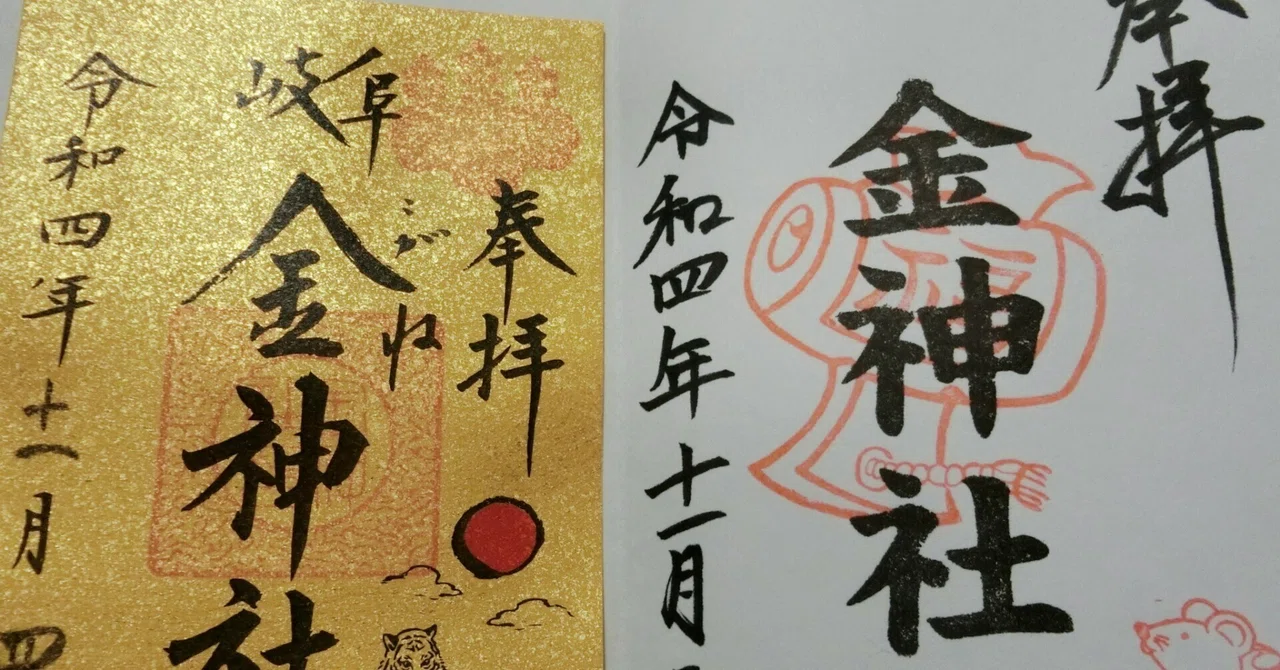 奉拝
岐阜
こがね
金神社
令和四年十一月四
奉拝
金神社
令和四年十一月